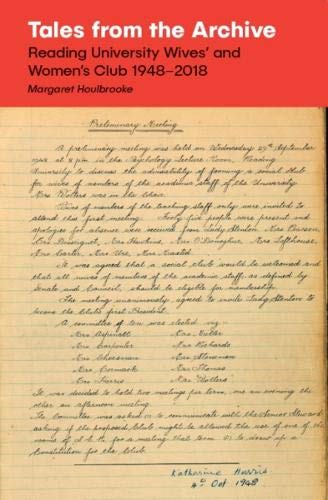 Tales from the Archive
Reading University Wives' and
Women's Club 1948–2018
Margaret Houlbrooke
Preliminary Meeting
A preliminary meeting was held on Wednesday 29th September
1948 at 8 p.m. in the Psychology Lecture Room, Reading
University to discuss the advisability of forming a social club
for wives of members of the academic staff of the University
Mrs Wolters was in the Chair.
Wives of members of the teaching staff only were invited to
attend this first meeting. Forty five people were present and
apologies for absence were received from Lady Stenton, Mrs Pearson,
Mrs Mrs Hawkins, Mrs O'Donoghue, Mrs Lofthouse,
Mrs Carter, Mrs Mrs
It was agreed that a social club would be welcomed and
that all wives of members of the academic staff, as defined by
Senate and Council, should be eligible for membership.
The meeting unanimously agreed to invite Lady Stenton to
become the Club's first President.
A committee of ten was elected viz:
Mrs Aspinall Mrs Miller
Mrs Carpenter Mrs Richards
Mrs Cheesman Mrs Stenman
Mrs Cormack Mrs Thomas
Mrs Harris Mrs Wolters
It was decided to hold two meetings per term, one an evening the
other an afternoon meeting.
The Committee was asked to communicate with the Senior Steward
asking if the proposed Club might be allowed the use of one of the
rooms of for a meeting that term & to draw up a
Constitution for the Club.
Katharine Harris
4th Oct 1948